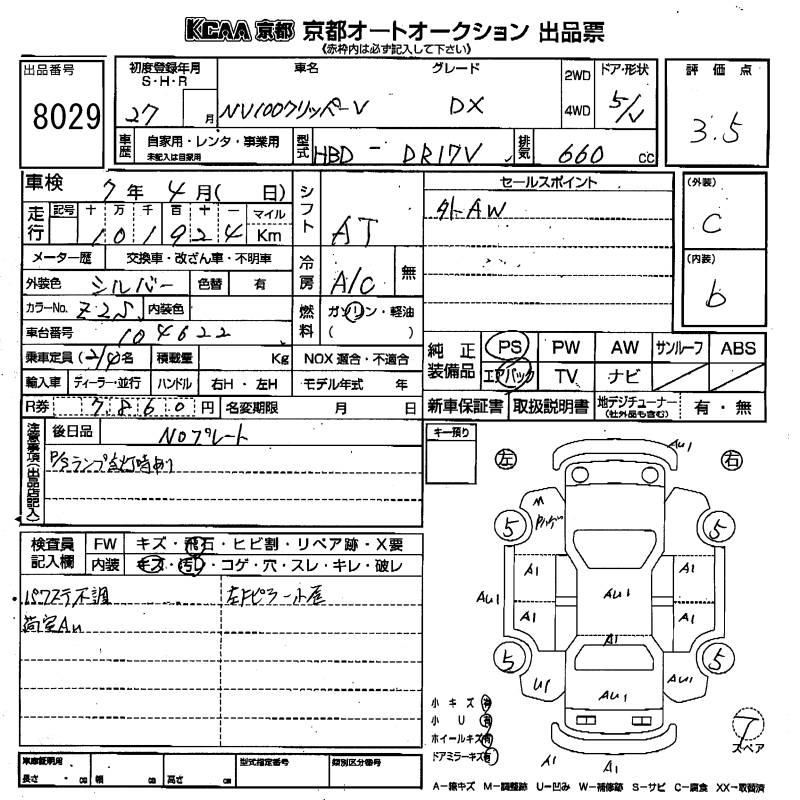 KCAA 京都 京都オートオークション 出品票
(赤枠内は必ず記入して下さい)
出品番号
8029
初度登録年月
S・H・R
27 月
車名
グレード
NV100クリッパーV DX
2WD
4WD
ドア・形状
5/V
評価点
3.5
車歴
自家用・レンタ・事業用
未記入は自家用
型式
HBD - DR17V
排気
660 cc
車検 7年 4月( 日)
走行
記号 十 万 千 百 十 一 マイル
101924 Km
メーター歴 交換車・改ざん車・不明車
外装色 シルバー 色替 有
カラーNo. Z2S 内装色
車台番号 104622
乗車定員 (2/4)名 積載量 Kg
輸入車 ディーラー・並行 ハンドル 右H・左H
R券 7860円 名変期限 月 日
シフト AT
冷房 A/C 無
燃料 ガソリン・軽油
( )
NOX 適合・不適合
モデル年式 年
セールスポイント
外AW
(外装)
C
(内装)
b
純正装備品
PS PW AW サンルーフ ABS
エアバック TV ナビ
新車保証書 取扱説明書 地デジチューナー (社外品も含む) 有・無
注意事項(出品店記入)
後日品 Noプレート
P/Sランプ点灯時あり
キー預り
検査員記入欄
FW キズ・飛石・ヒビ割・リペア跡・X要
内装 キズ・汚れ・コゲ・穴・スレ・キレ・破レ
パワステ不調
荷室AU
左Fピラー小
左 右
AU1
M
5 5
A1 A1
AU1 AU1 AU1
A1 A1
A1
5 5
U1 AU1 AU1
A1 A1
小キズ 有
小U 有
ホイールキズ 有
ドアミラーキズ 有
T
スペア
車庫証明用
長さ cm 幅 cm 高さ cm
型式指定番号
類別区分番号
A-線キズ M-調整跡 U-凹み W-補修跡 S-サビ C-腐食 XX-取替済